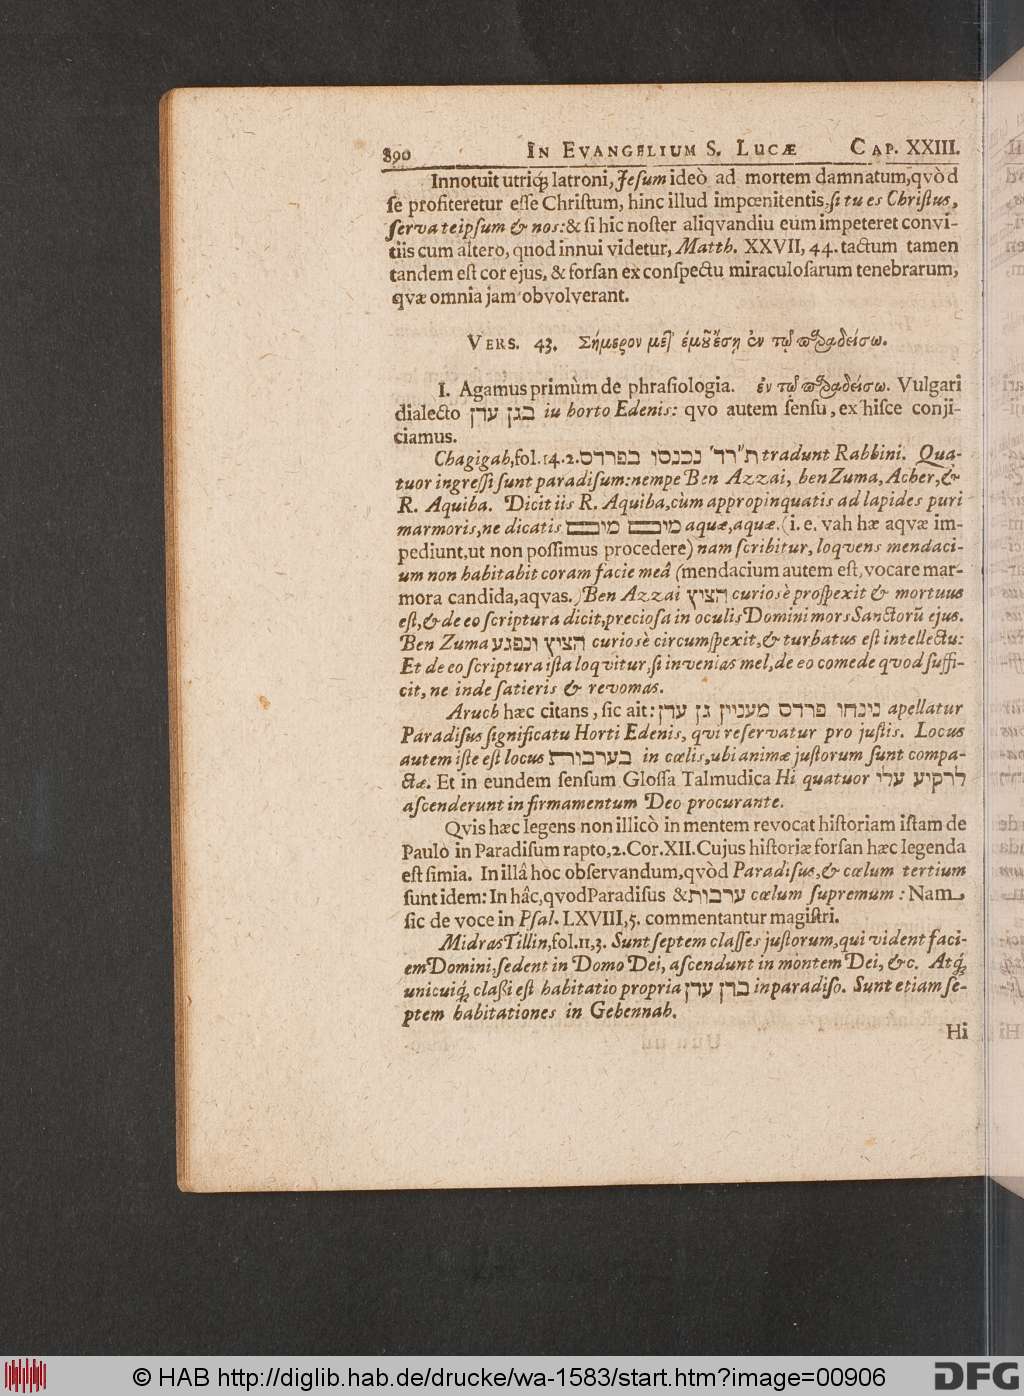 890 IN EVANGELIUM S. LUCÆ CAP. XXIII.
Innotuit utriq; latroni, Jesum ideò ad mortem damnatum, qvòd
se profiteretur esse Christum, hinc illud impœnitentis, si tu es Christus,
serva teipsum & nos: & si hic noster aliqvandiu eum impeteret convi-
tiis cum altero, quod innui videtur, Matth. XXVII, 44. tactum tamen
tandem est cor ejus, & forsan ex conspectu miraculosarum tenebrarum,
qvæ omnia jam obvolverant.
VERS. 43. Σήμερον μετ' ἐμοῦ ἔσῃ ἐν τῷ παραδείσῳ.
I. Agamus primùm de phrasiologia. ἐν τῷ παραδείσῳ. Vulgari
dialecto בגן עדן iu horto Edenis: qvo autem sensu, ex hisce conji-
ciamus.
Chagigah, fol. 14. 2. ת״רד' נכנסו בפרדס tradunt Rabbini. Qua-
tuor ingressi sunt paradisum: nempe Ben Azzai, ben Zuma, Acher, &
R. Aquiba. Dicit iis R. Aquiba, cùm appropinquatis ad lapides puri
marmoris, ne dicatis מים מים aquæ, aquæ. (i. e. vah hæ aqvæ im-
pediunt, ut non possimus procedere) nam scribitur, loqvens mendaci-
um non habitabit coram facie meâ (mendacium autem est, vocare mar-
mora candida, aqvas.) Ben Azzai הציץ curiosè prospexit & mortuus
est, & de eo scriptura dicit, preciosa in oculis Domini mors Sanctorũ ejus.
Ben Zuma הציץ ונפגע curiosè circumspexit, & turbatus est intellectu:
Et de eo scriptura ista loqvitur, si invenias mel, de eo comede qvod suffi-
cit, ne inde satieris & revomas.
Aruch hæc citans, sic ait: נינחו פרדס מעניין גן עדן apellatur
Paradisus significatu Horti Edenis, qvi reservatur pro justis. Locus
autem iste est locus בערבות in cœlis, ubi animæ justorum sunt compa-
ctæ. Et in eundem sensum Glossa Talmudica Hi quatuor לרקיע עלי
ascenderunt in firmamentum Deo procurante.
Qvis hæc legens non illicò in mentem revocat historiam istam de
Paulo in Paradisum rapto, 2. Cor. XII. Cujus historiæ forsan hæc legenda
est simia. In illâ hoc observandum, qvòd Paradisus, & cœlum tertium
sunt idem: In hâc, qvod Paradisus & ערבות cœlum supremum: Nam
sic de voce in Psal. LXVIII, 5. commentantur magistri.
Midras Tillin, fol. 11, 3. Sunt septem classes justorum, qui vident faci-
em Domini, sedent in Domo Dei, ascendunt in montem Dei, &c. Atq;
unicuiq; classi est habitatio propria ברן עדן in paradiso. Sunt etiam se-
ptem habitationes in Gehennah.
Hi
© HAB http://diglib.hab.de/drucke/wa-1583/start.htm?image=00906
DFG